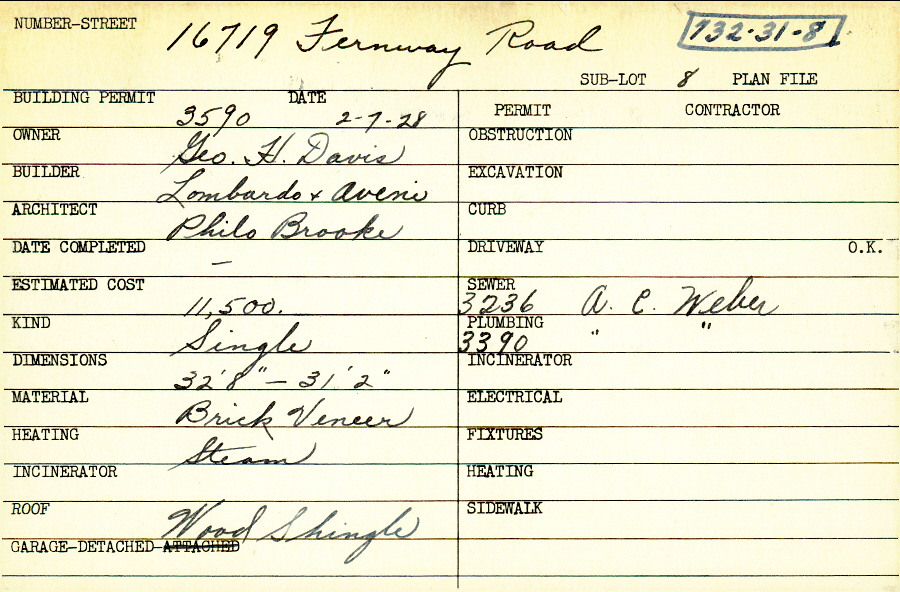 NUMBER-STREET 16719 Fernway Road 732-31-8
SUB-LOT 8 PLAN FILE
BUILDING PERMIT 3590 DATE 2-7-28
PERMIT CONTRACTOR
OWNER Geo. H. Davis
OBSTRUCTION
BUILDER Lombardo + Aveni
EXCAVATION
ARCHITECT Philo Brooke
CURB
DATE COMPLETED —
DRIVEWAY O.K.
ESTIMATED COST 11,500.
SEWER 3236 A. C. Weber
KIND Single
PLUMBING 3390 " "
DIMENSIONS 32'8" — 31'2"
INCINERATOR
MATERIAL Brick Veneer
ELECTRICAL
HEATING Steam
FIXTURES
INCINERATOR
HEATING
ROOF Wood Shingle
SIDEWALK
GARAGE-DETACHED-ATTACHED